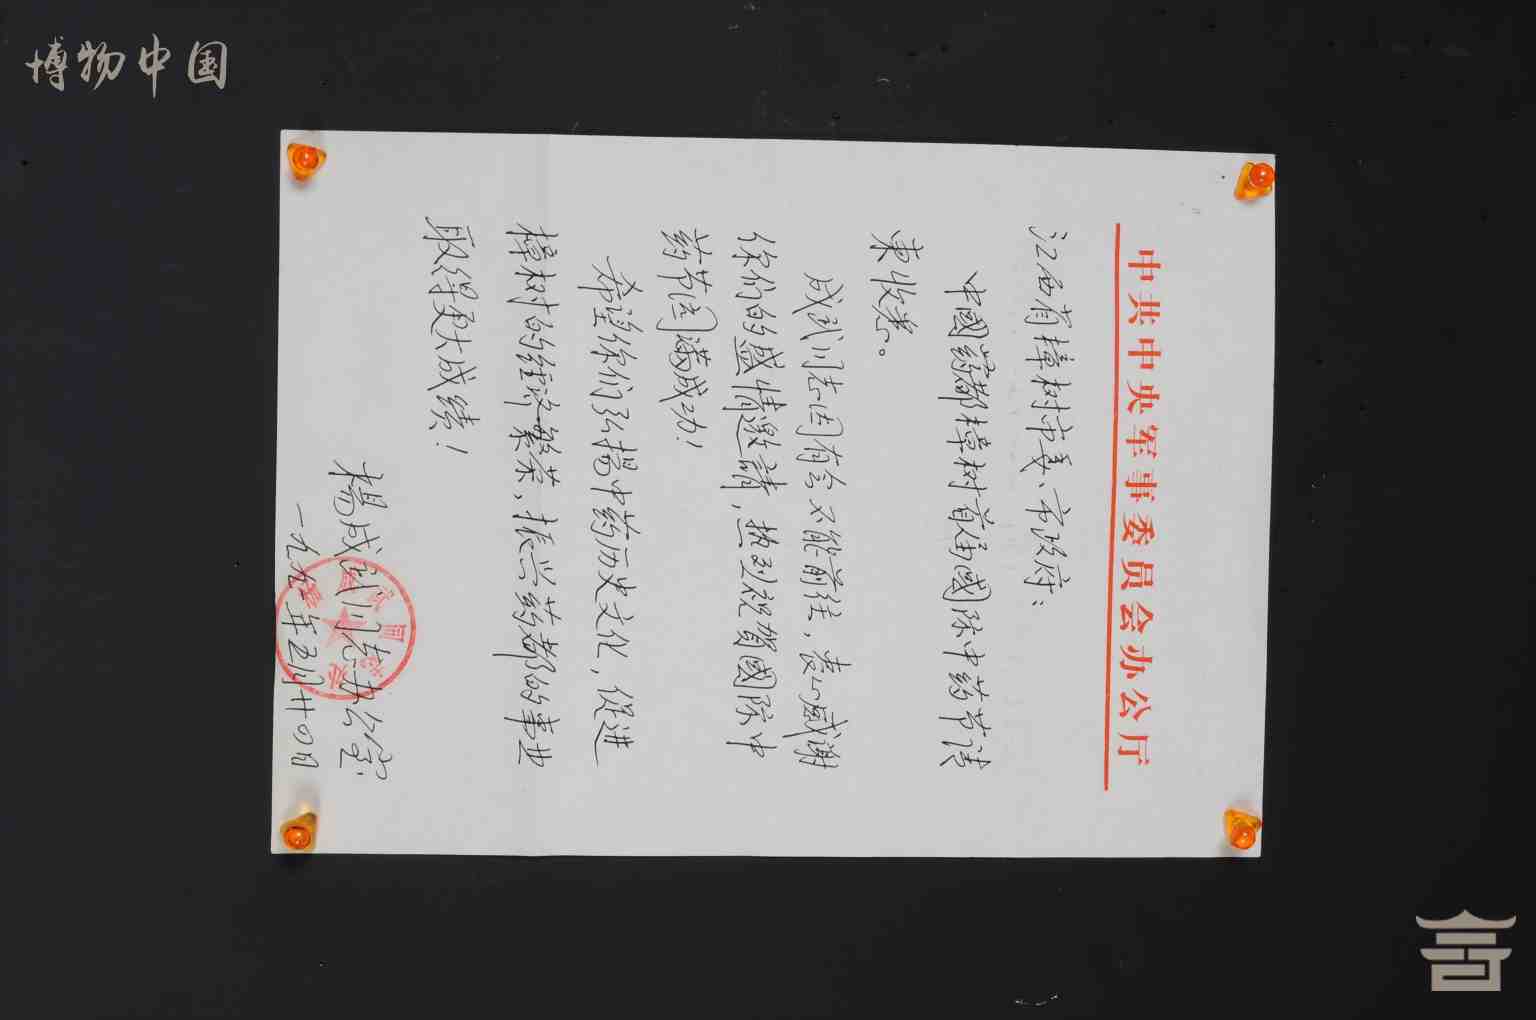 博物中国
中共中央军事委员会办公厅
江西省樟树市委、市政府：
中國药都樟树首届國际中药节请
柬收悉。
成武同志因有会不能前往，衷心感谢
你们的盛情邀請，热烈祝賀國际中
药节园满成功！
希望你们弘揚中药历史文化，促进
樟树的经济繁荣，振兴药都的事业
取得更大成绩！
楊成武同志办公室
一九九一年五月廿四日